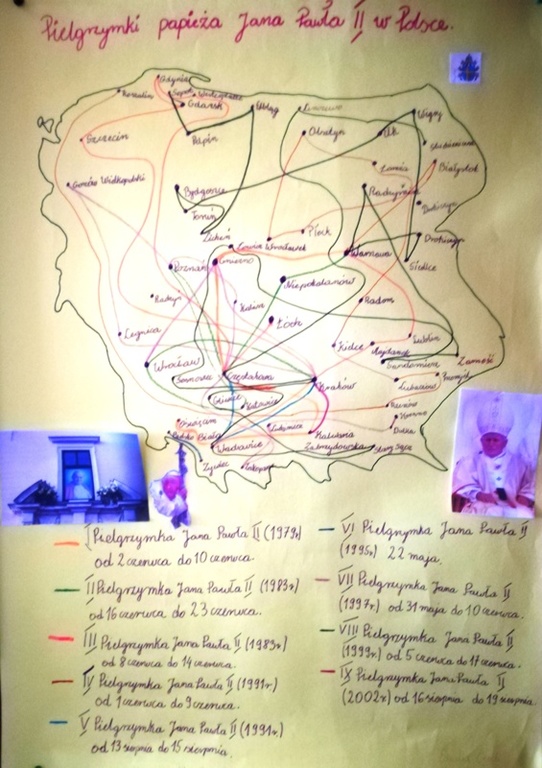 Pielgrzymki papieża Jana Pawła II w Polsce.
Gdynia
Koszalin
Sopot
Gdańsk
Elbląg
Olsztyn
Ełk
Wigry
Szczecin
Pelplin
Łomża
Białystok
Gorzów Wielkopolski
Bydgoszcz
Toruń
Radzymin
Licheń
Płock
Drohiczyn
Włocławek
Warszawa
Siedlce
Poznań
Gniezno
Niepokalanów
Radom
Kalisz
Łódź
Legnica
Kielce
Majdanek
Lublin
Sandomierz
Zamość
Wrocław
Częstochowa
Przemyśl
Gliwice
Katowice
Kraków
Lubaczów
Oświęcim
Bielsko Biała
Ludźmierz
Kalwaria
Zebrzydowska
Dukla
Wadowice
Stary Sącz
Żywiec
Zakopane
I Pielgrzymka Jana Pawła II (1979r)
od 2 czerwca do 10 czerwca.
II Pielgrzymka Jana Pawła II (1983r)
od 16 czerwca do 23 czerwca.
III Pielgrzymka Jana Pawła II (1989r)
od 8 czerwca do 14 czerwca.
IV Pielgrzymka Jana Pawła II (1991r)
od 1 czerwca do 9 czerwca.
V Pielgrzymka Jana Pawła II (1991r)
od 13 sierpnia do 15 sierpnia.
VI Pielgrzymka Jana Pawła II
(1995r) 22 maja.
VII Pielgrzymka Jana Pawła II
(1997r) od 31 maja do 10 czerwca.
VIII Pielgrzymka Jana Pawła II
(1999r) od 5 czerwca do 17 czerwca.
IX Pielgrzymka Jana Pawła II
(2002r) od 16 sierpnia do 19 sierpnia.